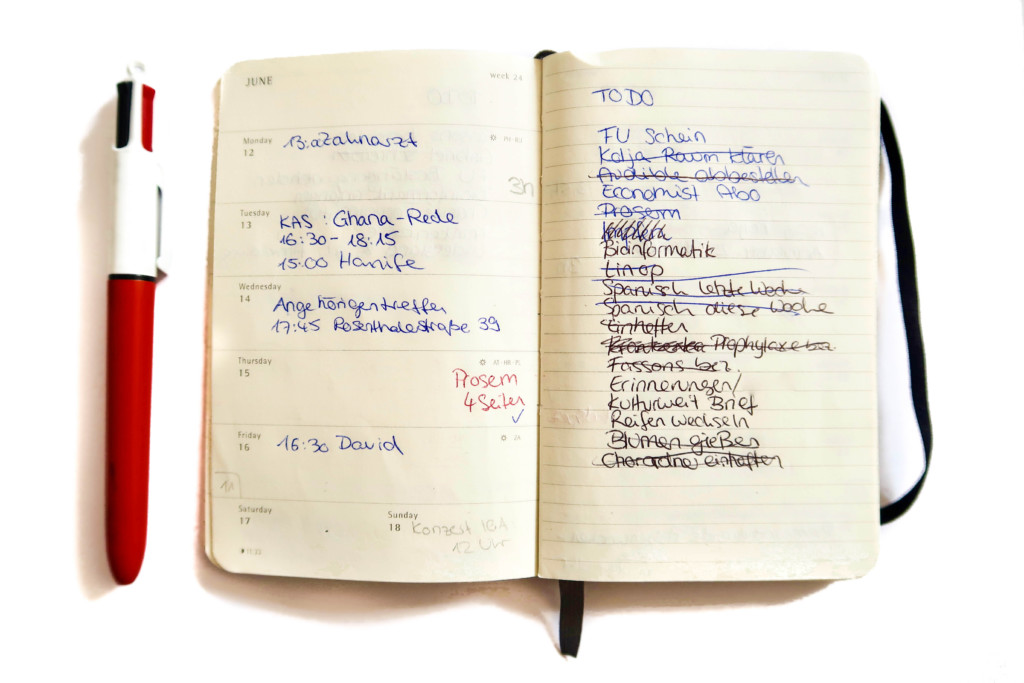 JUNE
week 24
Monday
12
Zahnarzt
3h
Tuesday
13
KAS : Ghana-Rede
16:30 - 18:15
15:00 Hanife
Wednesday
14
Angehörigentreffen
17:45 Rosenthalestraße 39
Thursday
15
Prosem
4 Seiten
Friday
16
16:30 David
Saturday
17
Sunday
18
Konzert IGA
12 Uhr
TO DO
FU Schein
Kolja Raum klären
Audible abbestellen
Economist Abo
Prosem
Bioinformatik
Linop
Spanisch letzte Woche
Spanisch diese Woche
Einheften
Prophylaxe
Fassons
Erinnerungen/
Kulturweit Brief
Reifen wechseln
Blumen gießen
Chorordner einheften